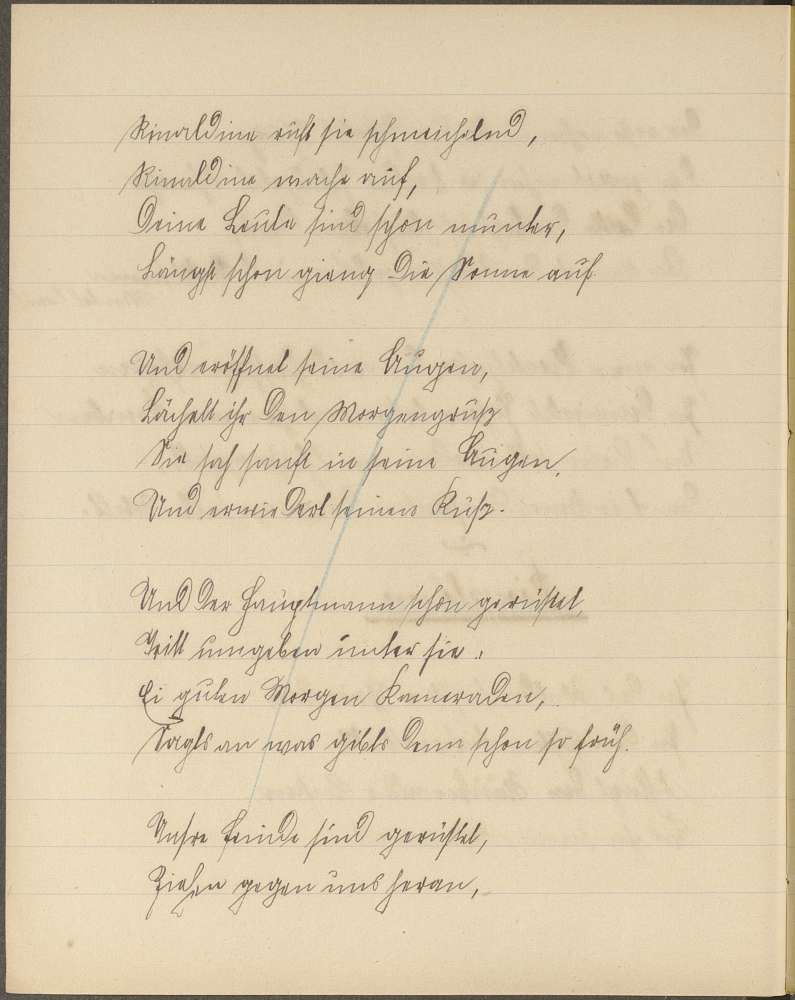 Rinaldine ruft sie schmeichelnd,
Rinaldine wache auf,
Deine Leute sind schon munter,
Längst schon gieng die Sonne auf
Und eröffnet seine Augen,
Lächelt ihr den Morgengruß
Sie sah sanft in seine Augen,
Und erwiedert seinen Kuß.
Und der Hauptmann schon gerüstet,
Tritt umgeben unter sie.
Ei guten Morgen Kameraden,
Sagts an was gibts denn schon so früh.
Unsre Feinde sind gerüstet,
Ziehen gegen uns heran,